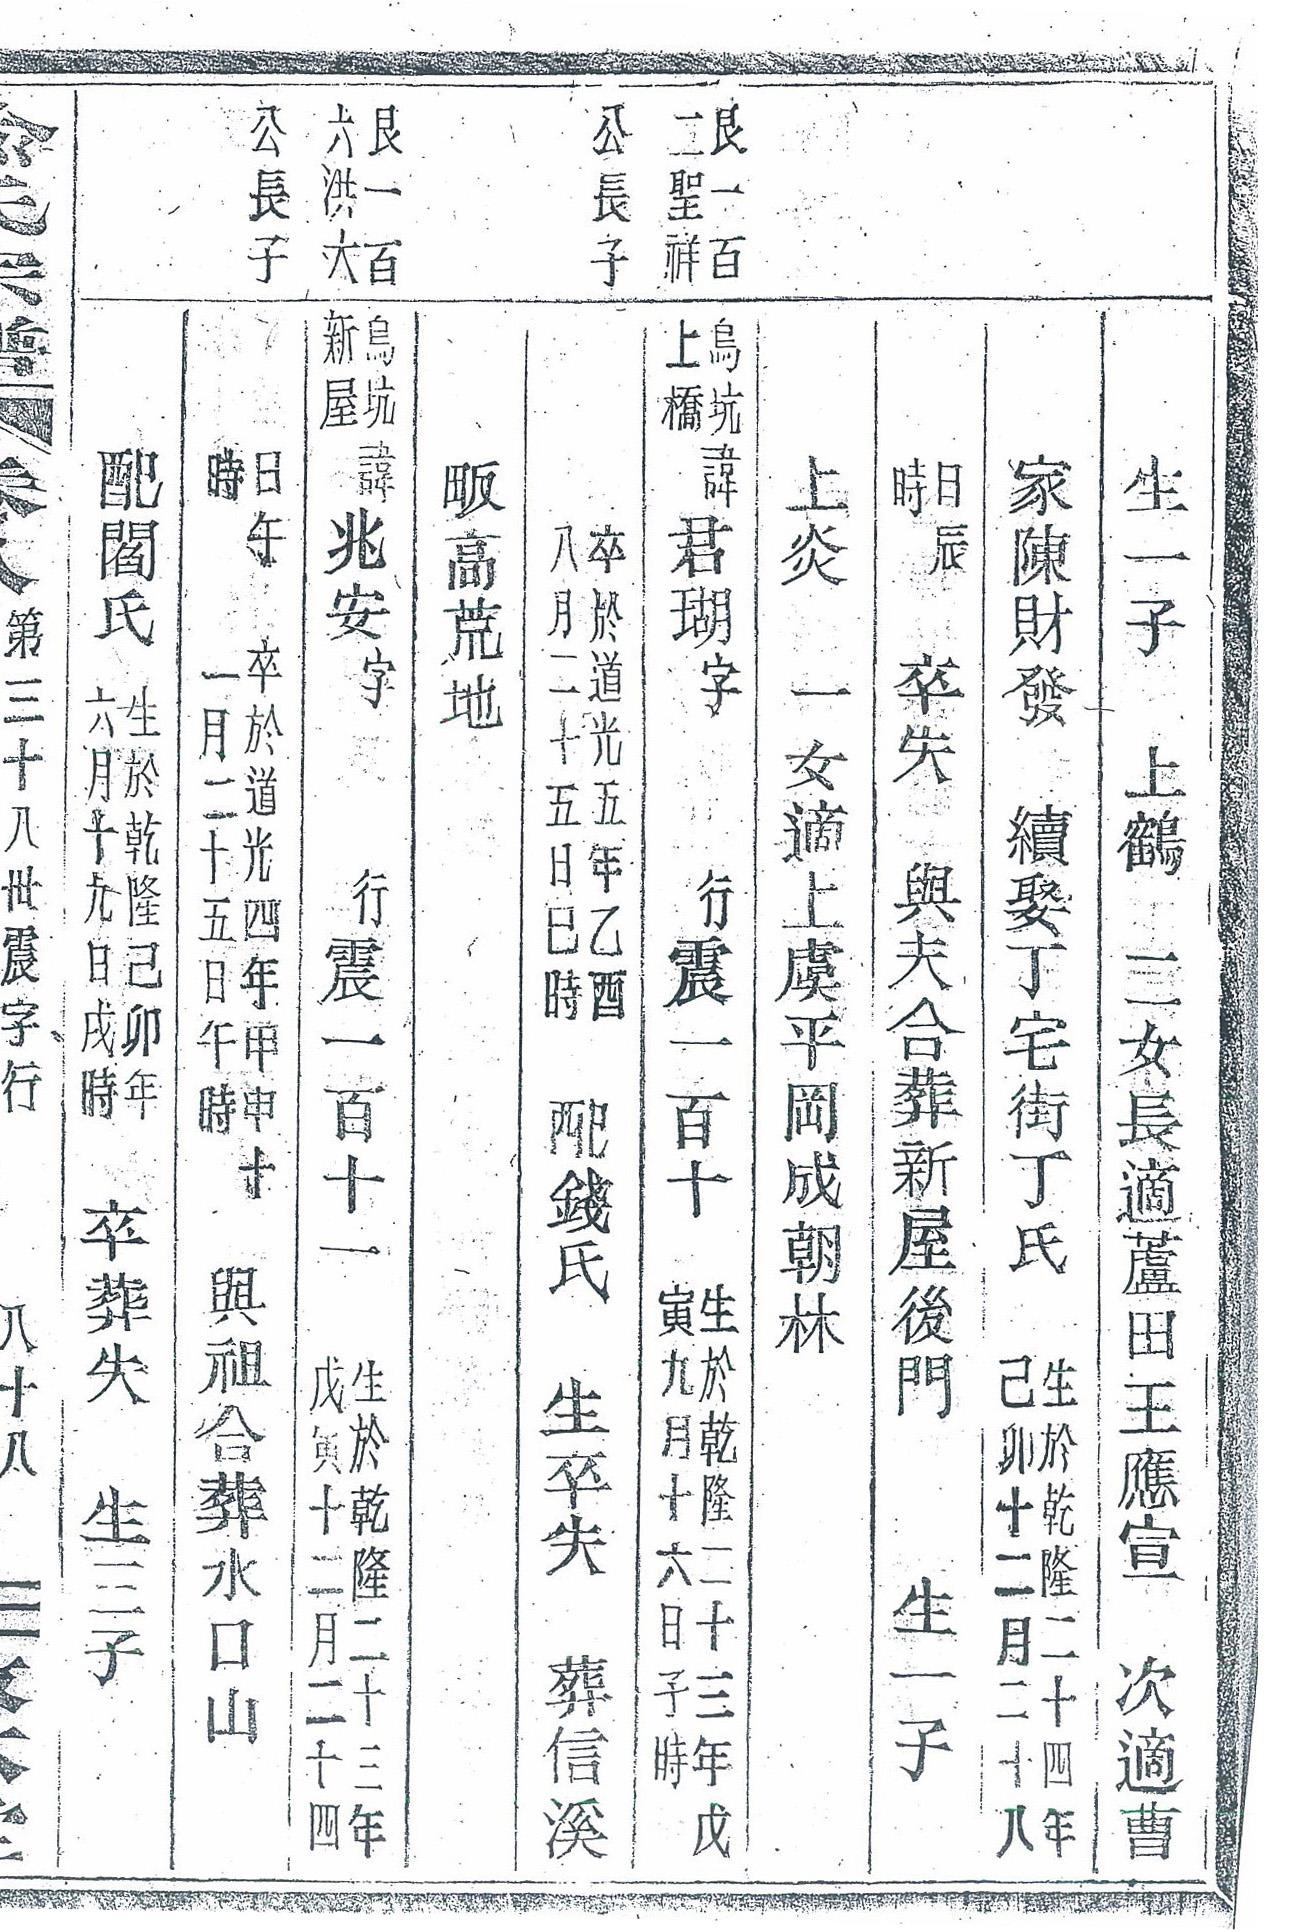 生一子 上鶴 三女長適蘆田王應宣 次適曹
家陳財發 續娶丁宅街丁氏 生於乾隆二十四年己卯十二月二十八
日辰時 卒失 與夫合葬新屋後門 生一子
上炎 一女適上虞平岡成朝林
艮一百二聖祥公長子
烏坑上橋 諱君瑚字 行震一百十 生於乾隆二十三年戊寅九月十六日子時
卒於道光五年乙酉八月二十五日巳時 配錢氏 生卒失 葬信溪
畈高荒地
艮一百六洪大公長子
烏坑新屋 諱兆安字 行震一百十一 生於乾隆二十三年戊寅十二月二十四
日午時 卒於道光四年甲申十一月二十五日午時 與祖合葬水口山
配閻氏 生於乾隆己卯年六月十九日戌時 卒葬失 生三子
第三十八世震字行 八十八